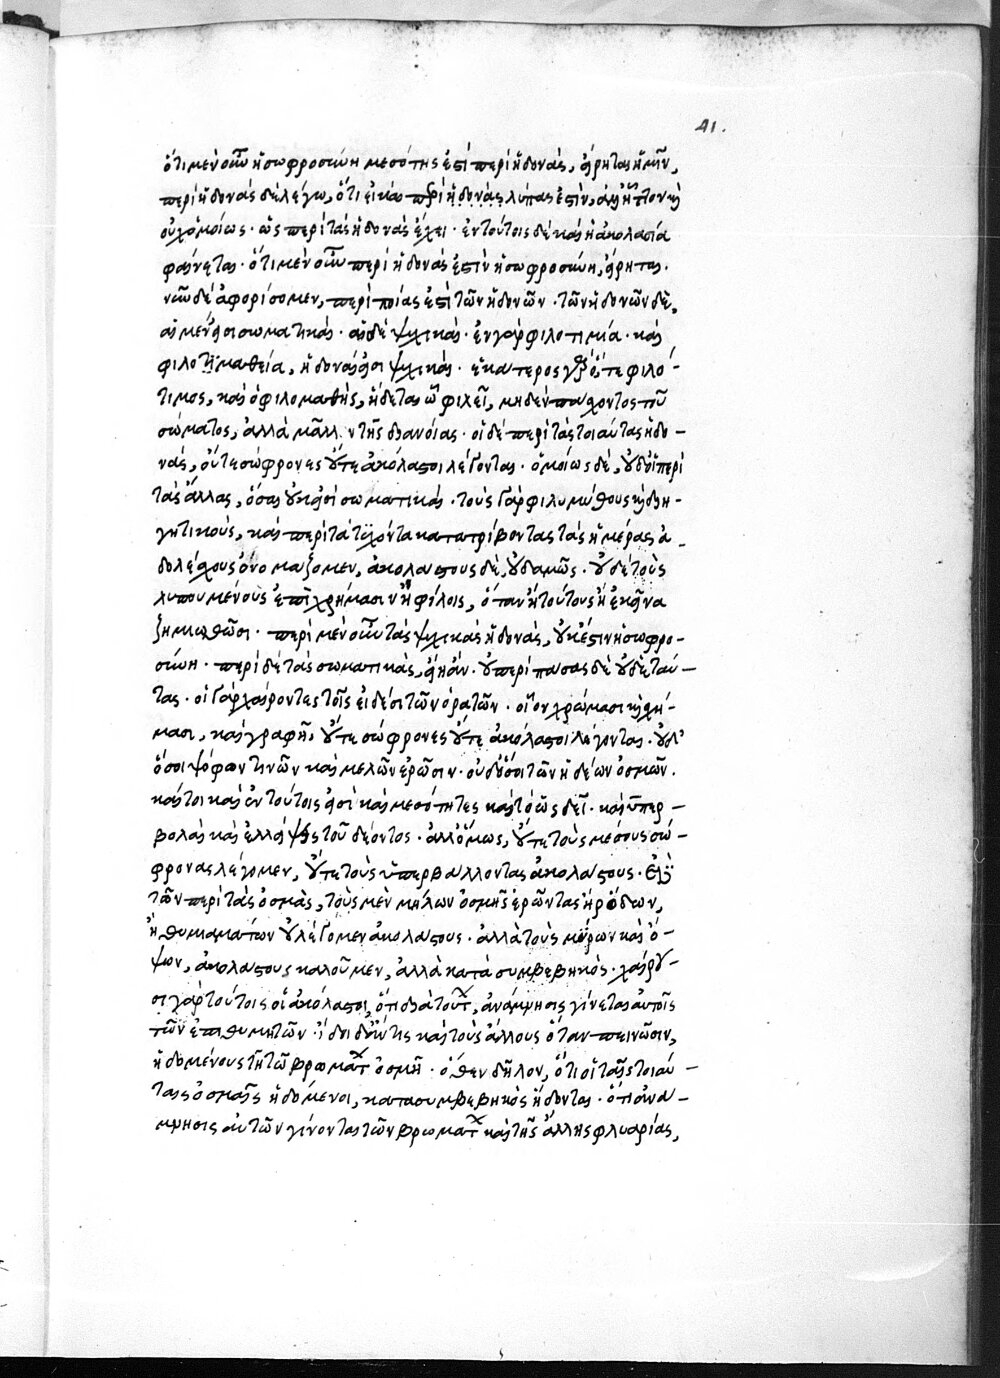 41.
ὅτι μὲν οὖν ἡ σωφροσύνη μεσότης ἐστὶ περὶ ἡδονὰς, εἴρηται ἡμῖν,
περὶ ἡδονὰς δὲ λέγω, ὅτι εἰ καὶ περὶ ἡδονὰς λύπας ἐστὶν, ἀλλ' ἧττον καὶ
οὐχ ὁμοίως· ὡς περὶ τὰς ἡδονὰς ἔχει· ἐν τούτοις δὲ καὶ ἡ ἀκολασία
φαίνεται· ὅτι μὲν οὖν περὶ ἡδονὰς ἐστὶν ἡ σωφροσύνη, εἴρηται.
νῦν δὲ ἀφορίσομεν, περὶ ποίας ἐστὶ τῶν ἡδονῶν· τῶν ἡδονῶν δὲ,
αἱ μέν εἰσι σωματικαί· αἱ δὲ ψυχικαί· ἐν γὰρ φιλοτιμία· καὶ
φιλομαθεία, ἡδοναί εἰσι ψυχικαί· ἑκάτερος γὰρ ὅ, τε φιλό-
τιμος, καὶ ὁ φιλομαθὴς, ἥδεται ᾧ φιλεῖ, μηδὲν πάσχοντος τοῦ
σώματος, ἀλλὰ μᾶλλον τῆς διανοίας· οἱ δὲ περὶ τὰς τοιαύτας ἡδο-
νὰς, οὔτε σώφρονες οὔτε ἀκόλαστοι λέγονται· ὁμοίως δὲ, οὐδ' οἱ περὶ
τὰς ἄλλας, ὅσαι οὐκ εἰσὶ σωματικαί· τοὺς γὰρ φιλομύθους καὶ διη-
γητικοὺς, καὶ περὶ τὰ τυχόντα κατατρίβοντας τὰς ἡμέρας ἀ-
δολέσχους ὀνομάζομεν, ἀκολάστους δὲ, οὐδαμῶς· οὐδὲ τοὺς
λυπουμένους ἐπὶ χρήμασιν ἢ φίλοις, ὅταν ἢ τούτους ἢ ἐκεῖνα
ζημιωθῶσι· περὶ μὲν οὖν τὰς ψυχικὰς ἡδονὰς, οὐκ ἔστιν ἡ σωφρο-
σύνη· περὶ δὲ τὰς σωματικὰς, εἴη ἄν· οὐ περὶ πάσας δὲ οὐδὲ ταύ-
τας· οἱ γὰρ χαίροντες τοῖς εἴδεσι τῶν ὁρατῶν· οἷον χρώμασι καὶ σχή-
μασι, καὶ γραφῇ, οὔτε σώφρονες οὔτε ἀκόλαστοι λέγονται· οὐδ'
ὅσοι ψόφων τινῶν καὶ μελῶν ἐρῶσιν· οὐδ' ὅσοι τῶν ἡδέων ὀσμῶν.
καίτοι καὶ ἐν τούτοις εἰσὶ καὶ μεσότητες καὶ τὸ ὡς δεῖ· καὶ ὑπερ-
βολαὶ καὶ ἐλλείψεις τοῦ δέοντος· ἀλλ' ὅμως, οὔτε τοὺς μέσους σώ-
φρονας λέγομεν, οὔτε τοὺς ὑπερβάλλοντας ἀκολάστους·
τῶν περὶ τὰς ὀσμὰς, τοὺς μὲν μήλων ὀσμῆς ἐρῶντας ἢ ῥόδων,
ἢ θυμιαμάτων οὐ λέγομεν ἀκολάστους· ἀλλὰ τοὺς μύρων καὶ ὄ-
ψων, ἀκολάστους καλοῦμεν, ἀλλὰ κατὰ συμβεβηκός· χαίρου-
σι γὰρ τούτοις οἱ ἀκόλαστοι, ὅτι διὰ τούτων, ἀνάμνησις γίνεται αὐτοῖς
τῶν ἐπιθυμητῶν· ἴδοι δ' ἄν τις καὶ τοὺς ἄλλους ὅταν πεινῶσιν,
ἡδομένους τῇ τῶν βρωμάτων ὀσμῇ· ὅθεν δῆλον, ὅτι οἱ ταῖς τοιαύ-
ταις ὀσμαῖς ἡδόμενοι, κατὰ συμβεβηκὸς ἥδονται· ὅτι ἀνα-
μνήσις αὐτῶν γίνονται τῶν βρωμάτων καὶ τῆς ἄλλης φλυαρίας,